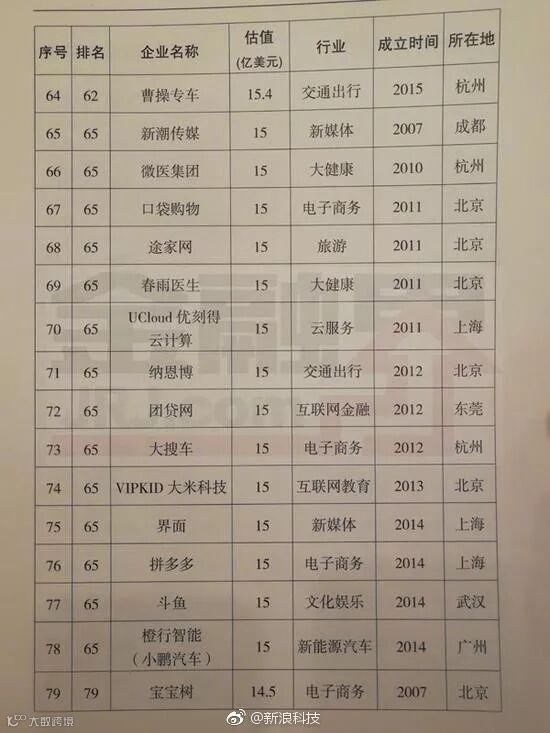 序号 排名 企业名称 估值(亿美元) 行业 成立时间 所在地
64 62 曹操专车 15.4 交通出行 2015 杭州
65 65 新潮传媒 15 新媒体 2007 成都
66 65 微医集团 15 大健康 2010 杭州
67 65 口袋购物 15 电子商务 2011 北京
68 65 途家网 15 旅游 2011 北京
69 65 春雨医生 15 大健康 2011 北京
70 65 UCloud 优刻得云计算 15 云服务 2011 上海
71 65 纳恩博 15 交通出行 2012 北京
72 65 团贷网 15 互联网金融 2012 东莞
73 65 大搜车 15 电子商务 2012 杭州
74 65 VIPKID 大米科技 15 互联网教育 2013 北京
75 65 界面 15 新媒体 2014 上海
76 65 拼多多 15 电子商务 2014 上海
77 65 斗鱼 15 文化娱乐 2014 武汉
78 65 橙行智能(小鹏汽车) 15 新能源汽车 2014 广州
79 79 宝宝树 14.5 电子商务 2007 北京
金融界
JRJ.com
大数跨境
@新浪科技